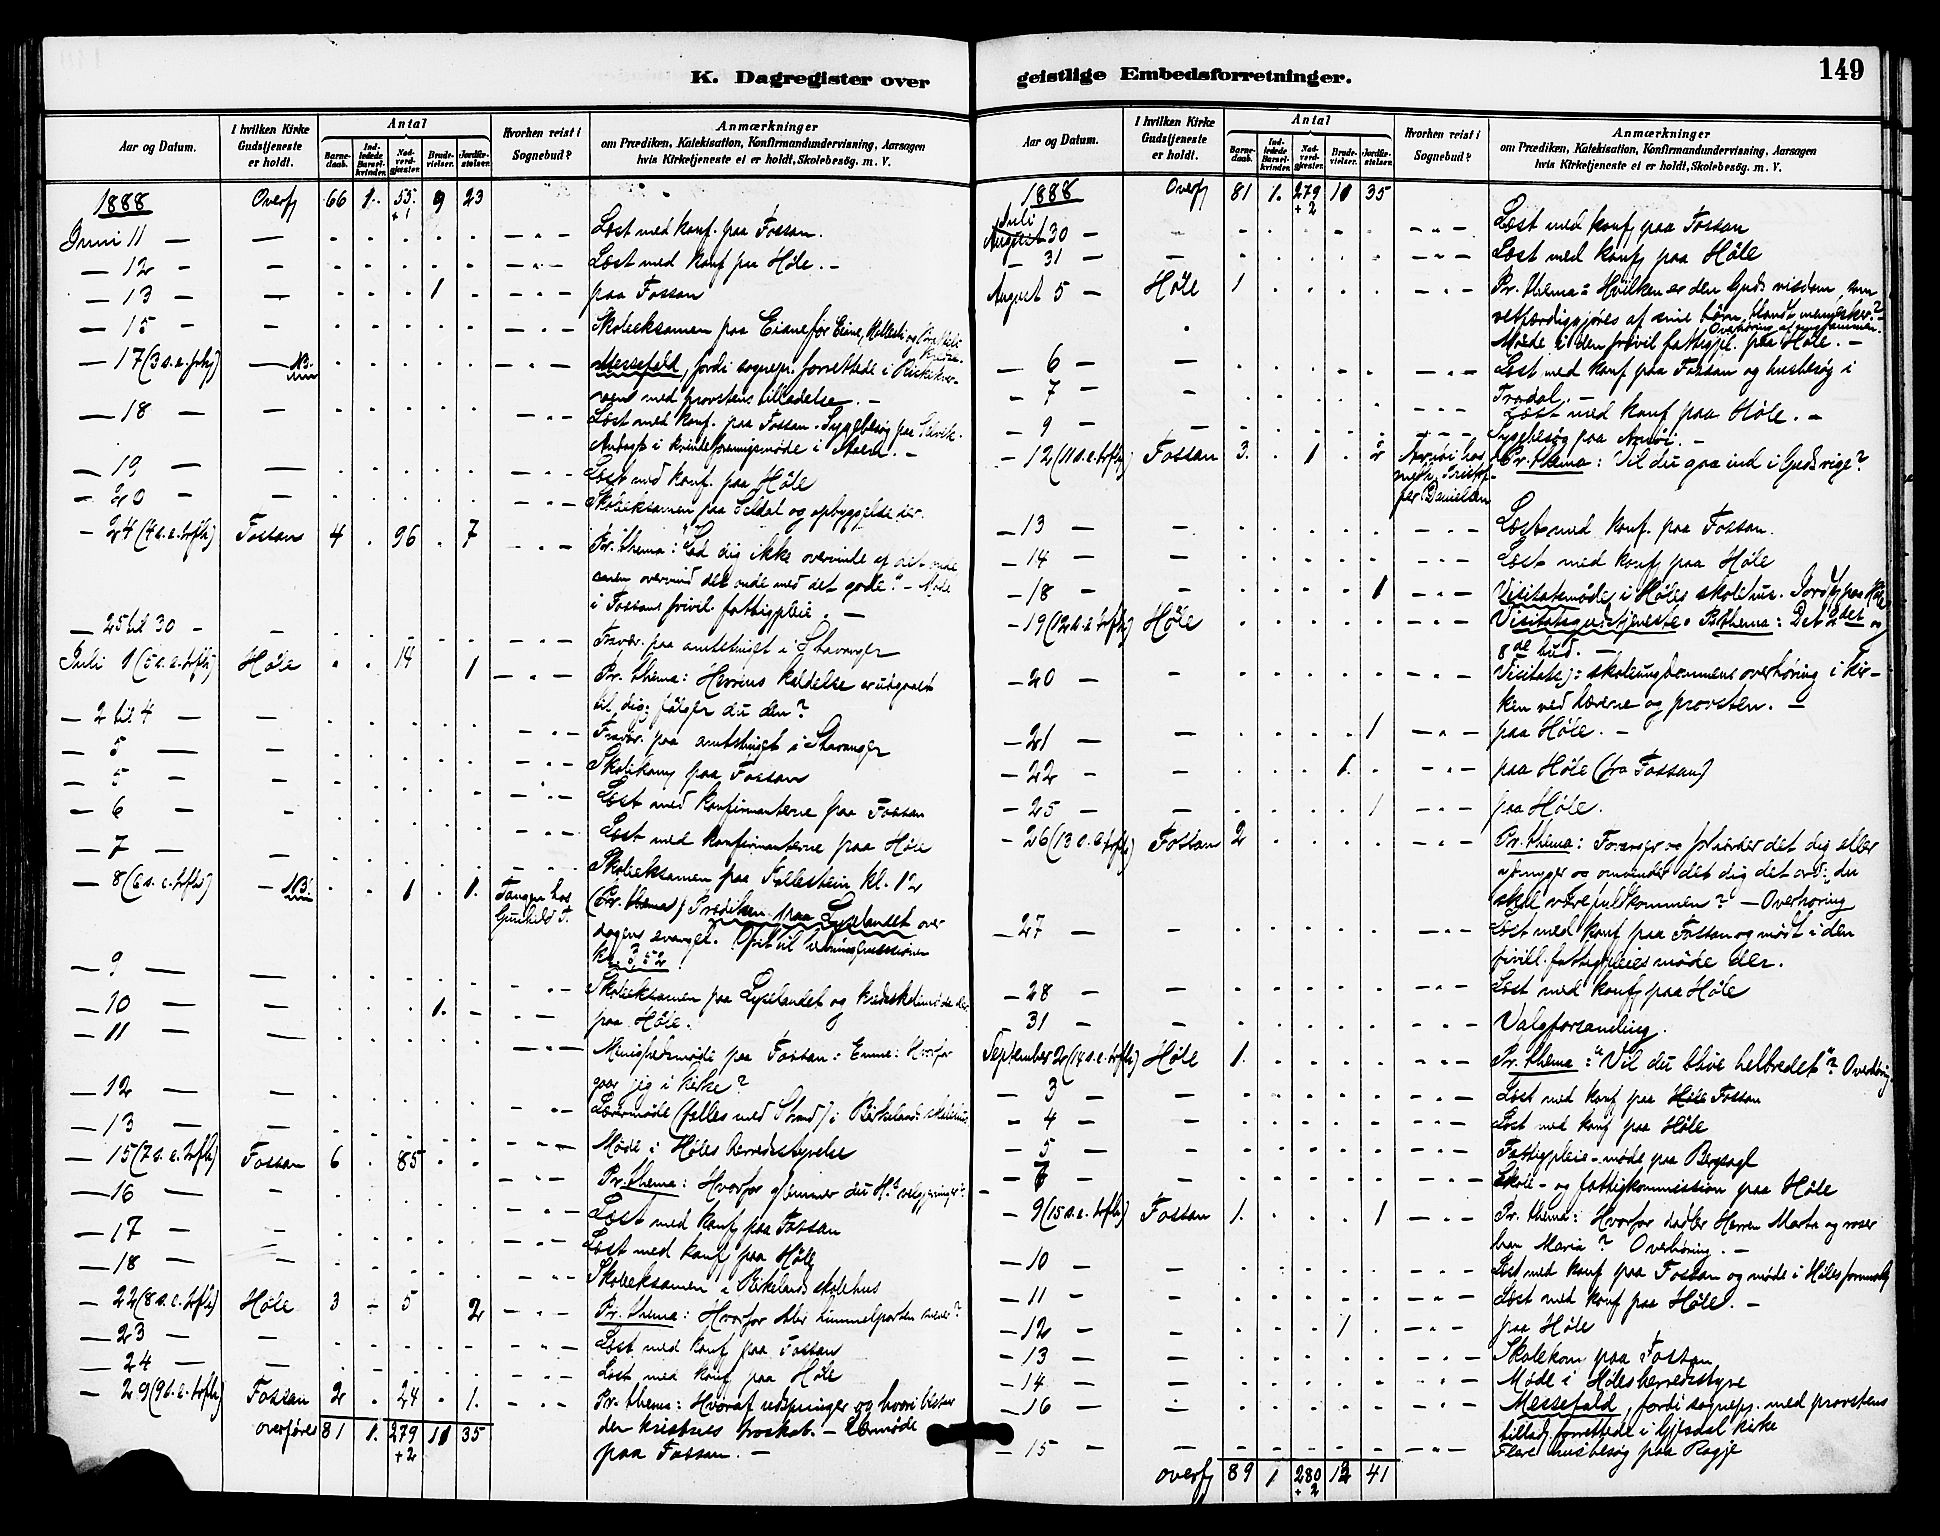 K. Dagregister over
Aar og Datum.
I hvilken Kirke Gudstjeneste er holdt.
Antal
Barnedaab.
Indledede Barselkvinder.
Nadverdgjæster.
Brudevielser.
Jordfæstelser.
Hvorhen reist i Sognebud?
Anmærkninger
om Prædiken, Katekisation, Konfirmandundervisning, Aarsagen
hvis Kirketjeneste ei er holdt, Skolebesøg. m. V.
1888 Overf 66 1. 55. + 1 9 23
Juni 11 — — Læst med konf. paa Fossan.
— 12 — Læst med konf paa Høle. —
— 13 — 1 paa Fossan
— 15 — Skoleeksamen paa Eiane for Eiene,
— 17 (3 s.e. trfh) — NB. Messefald, fordi sognepr. forrettede i
med provstens tilladelse. —
— 18 — Læst med konf. paa Fossan. Sygebesøg paa
i kvindeforeningsmøde i
— 19 — Læst med konf. paa Høle
— 20 — Skoleeksamen paa Seldal og opbyggelse der.
— 24 (4 s.e. trfh) Fossan 4 . 96 . 7 Pr. thema: "Lad dig ikke overvinde af det onde
men overvind det onde med det gode". — Møde
i Fossans frivil. fattigpleie. —
— 25 til 30 — Fravær. paa amtsthinget i Stavanger
Juli 1 (5 s.e. trfh) Høle . . 14 1 Pr. thema: Herrens kaldelse er udgaaet
til dig; følger du den?
— 2 til 4 — Fravær. paa amtsthinget i Stavanger
— 5 — Skolekom paa Fossan
— 5 — Læst med konfirmanterne paa Fossan
— 6 — Læst med konfirmanterne paa Høle
— 7 — Skoleeksamen paa kl. 12
— 8 (6 s.e. trfh) — NB. 1 . 1. Tangen hos Gunhild T. (Pr. thema) Prædiken paa Lyselandet over
dagens evangel. Ofret til
kr. 3,52
— 9 — Skoleeksamen paa Lyselandet og der
— 10 — 1. paa Høle.
— 11 — Menighedsmøde paa Fossan: Emne: Hvorfor
gaar jeg i kirke?
— 12 — Lærermøde (fælles med Strand) i Birkelands skolehus
— 13 — Møde i Høles herredsstyrelse
— 15 (7 s.e. trfh) Fossan 6 . 85 . . Pr. thema: Hvorfor glemmer du H.s velgjerninger?
— 16 — Læst med konf paa Fossan
— 17 — Læst med konf paa Høle
— 18 — Skoleeksamen i Birkelands skolehus
— 22 (8 s.e. trfh) Høle 3 — 5 2 Pr. thema: Hvorfor bler himmelporten snever?
— 23 — Læst med konf paa Fossan
— 24 — Læst med konf. paa Høle
— 29 (9 s.e. trfh) Fossan 2 . 24 . 1. Pr. thema: Hvoraf udspringer og hvori bestaar
den kristnes troskab. —
paa Fossan. —
overføres 81 1. 279 + 2 11 35
geistlige Embedsforretninger.
149
Aar og Datum.
I hvilken Kirke Gudstjeneste er holdt.
Antal
Barnedaab.
Indledede Barselkvinder.
Nadverdgjæster.
Brudevielser.
Jordfæstelser.
Hvorhen reist i Sognebud?
Anmærkninger
om Prædiken, Katekisation, Konfirmandundervisning, Aarsagen
hvis Kirketjeneste ei er holdt, Skolebesøg. m. V.
1888 Overf 81 1. 279 + 2 11 35
Juli 30 — Læst med konf paa Fossan
— 31 — Læst med konf paa Høle
August 5 — Høle 1 Pr. thema: Hvilken er den Guds visdom, som
retfærdiggjøres af sine børn blandt mennesker?
Overhøring af ungdommen.
— 6 — Møde i den frivil fattigpl. paa Høle. —
— 7 — Læst med konf paa Fossan og husbesøg i
Tradal. —
Læst med konf paa Høle. —
— 9 — Sygebesøg paa Arnøi. —
— 12 (11 s.e. trfh) Fossan 3. . 1 . 2 Arnøi hos Danielsen Pr. thema: Vil du gaa ind i Guds rige?
— 13 — Læst med konf. paa Fossan.
— 14 — Læst med konf paa Høle
— 18 — 1 Visitatsmøde i Høles skolehus. Jordf paa Høle
— 19 (12 s.e. trfh) Høle Visitatsgudstjeneste. Pr. thema: Det 2det og
8de bud. —
— 20 — Visitats: skoleungdommens overhøring i kir-
ken ved lærerne og provsten. —
— 21 — 1 paa Høle. —
— 22 — 1. paa Høle (fra Fossan)
— 25 — 1 paa Høle.
— 26 (13 s.e. trfh) Fossan 2 Pr. thema: Forarger og forhærder det dig eller
ydmyger og omvender det dig det ord: du
skal være fuldkommen? — Overhøring
— 27 — Læst med konf paa Fossan og mødt i den
frivill. fattigpleies møde der.
— 28 — Læst med konf paa Høle
— 31 — Valgforsamling.
September 2 (14 s.e. trfh) Høle 1. Pr. thema: "Vil du blive helbredet"? Overhøring
— 3 — Læst med konf paa Høle Fossan
— 4 — Læst med konf paa Høle
— 5 — Fattigpleie-møde paa Bergsagl
— 6 — Skole- og fattigkommission paa Høle
— 9 (15 s.e. trfh) Fossan 1. 1 Pr. thema: Hvorfor dadler Herren Marta og roser
han Maria? Overhøring. —
— 10 — Læst med konf paa Fossan og møde i Høles formandsk
— 11 — Læst med konf paa Høle. —
— 12 — 1 paa Høle
— 13 — Skolekom paa Fossan
— 14 — Møde i Høles herredsstyre
— 16 — Messefald, fordi sognepr. med provstens
tillad. forrettede i Gjesdal kirke
— 15 — Flere husbesøg paa Ragje
overf 89 1 280 + 2 12 41